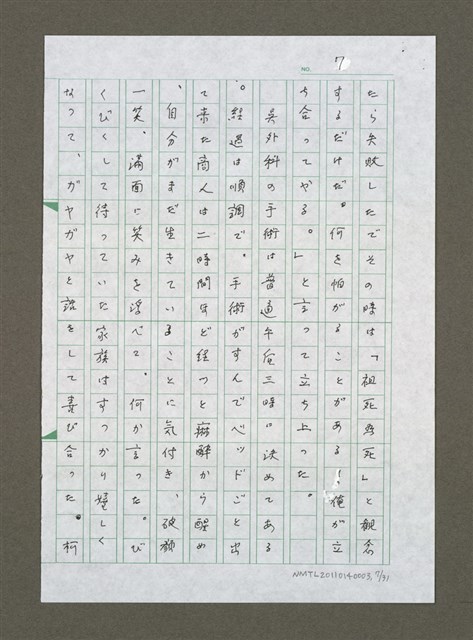 NO. 7
たら失敗したでその時は「祖死無死」と観念
するだけだ。何を怕がることがある！俺が立
ち合ってやる。」と言って立ち上った。
吳外科の手術は普通午后三時に決めてある
。経過は順調で、手術がすんでベッドごと出
て来た商人は二時間ほど経つと痲酔から醒め
、自分がまだ生きていることに気付き、破顔
一笑、満面に笑みを浮べて、何か言った。び
くびくして待っていた家族はすっかり嬉しく
なって、ガヤガヤと話をして喜び合った。柯
NMTL20110140003, 7/31